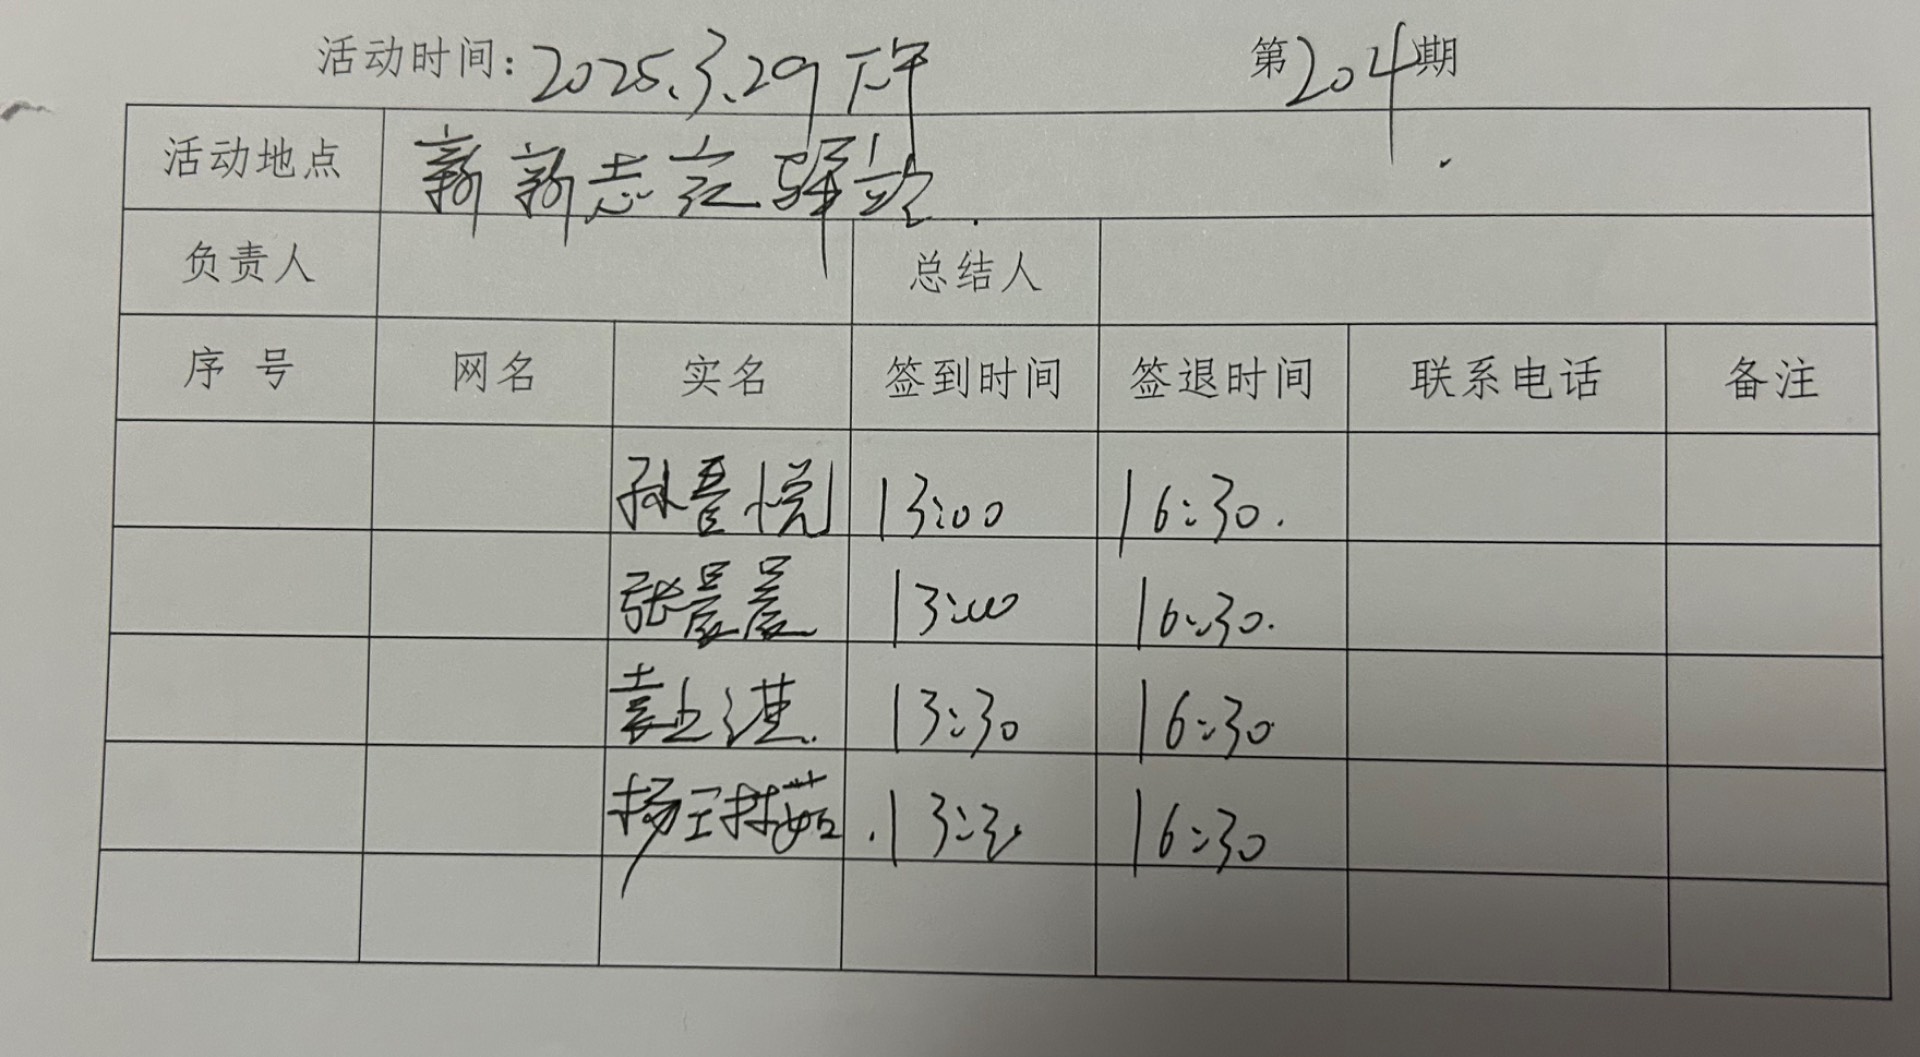 活动时间: 2025.3.29下午 第204期
活动地点 新新志京驿站
负责人 总结人
序号 网名 实名 签到时间 签退时间 联系电话 备注
孙晋悦 13:00 16:30.
张晨晨 13:00 16:30.
袁 13:30 16:30
杨 13:30 16:30